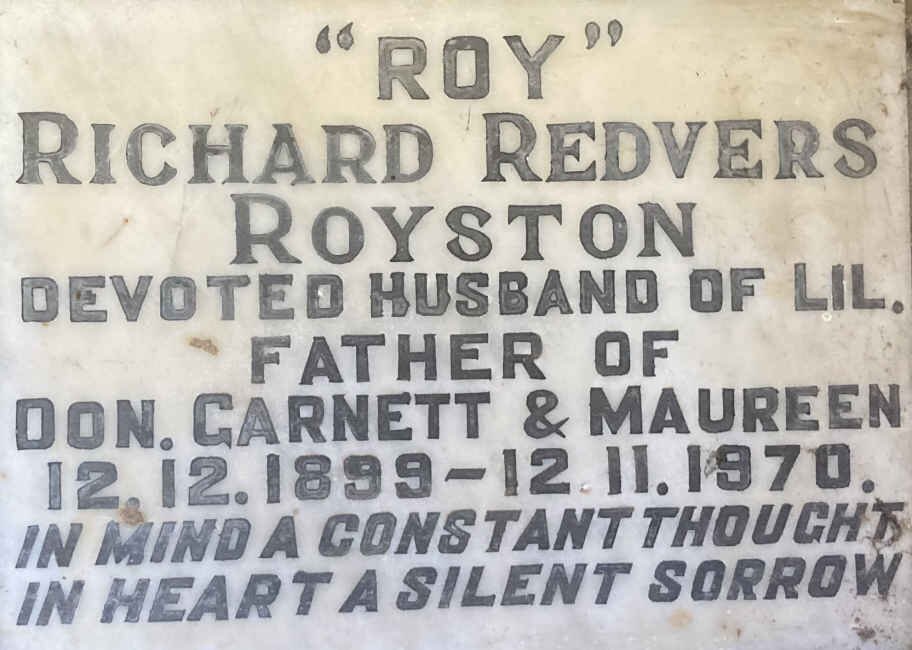 “ROY”
RICHARD REDVERS
ROYSTON
DEVOTED HUSBAND OF LIL.
FATHER OF
DON. GARNETT & MAUREEN
12.12.1899-12 11.1970.
IN MIND A CONSTANT THOUGHT
IN HEART A SILENT SORROW